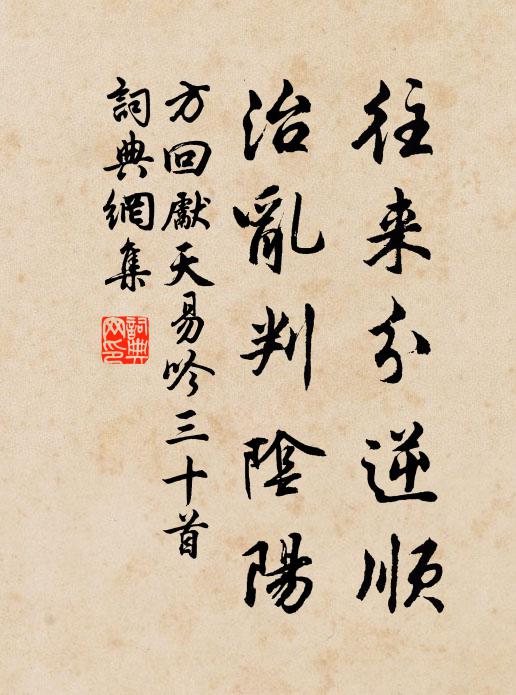 往来分逆順
治亂判陰陽
方回獻天易吟三十首
詞典網集
詞典網印